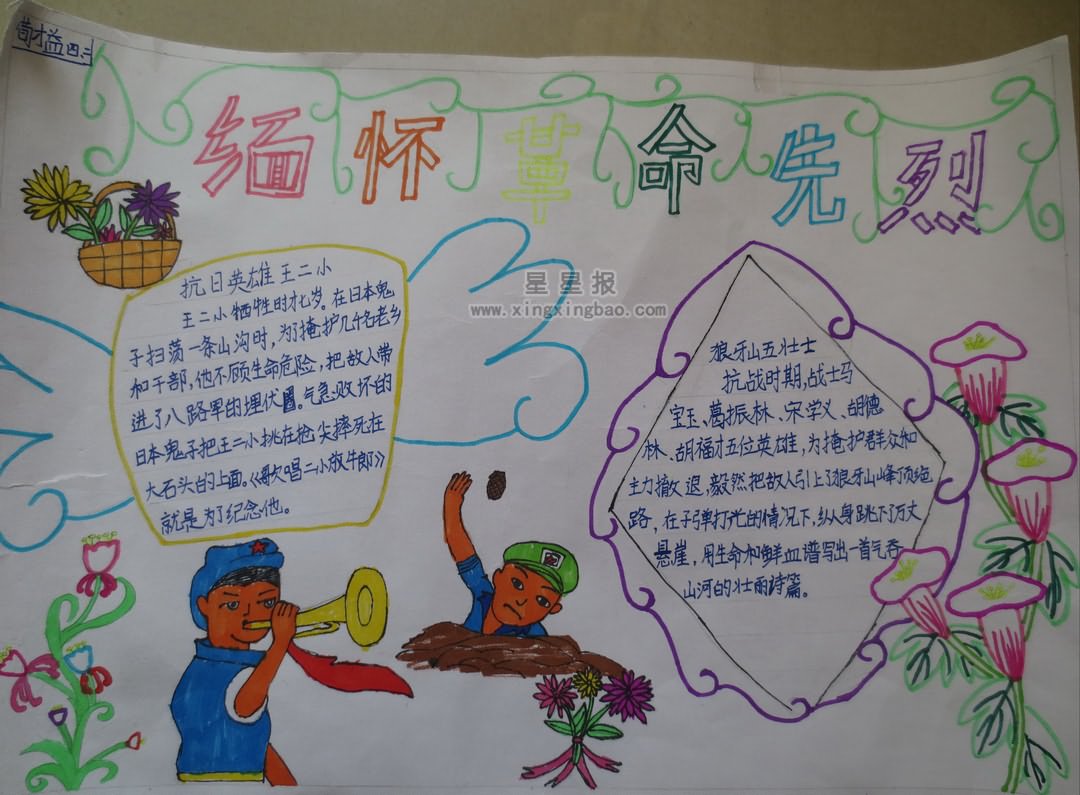 苟才益四.二
缅怀革命先烈
星星报
www.xingxingbao.com
抗日英雄王二小
王二小牺牲时才七岁。在日本鬼
子扫荡一条山沟时,为了掩护几千名老乡
和干部,他不顾生命危险,把敌人带
进了八路军的埋伏圈。气急败坏的
日本鬼子把王二小挑在枪尖摔死在
大石头的上面。《歌唱二小放牛郎》
就是为了纪念他。
狼牙山五壮士
抗战时期,战士马
宝玉、葛振林、宋学义、胡德
林、胡福才五位英雄,为掩护群众和
主力撤退,毅然把敌人引上了狼牙山峰顶绝
路,在子弹打光的情况下,纵身跳下万丈
悬崖,用生命和鲜血谱写出一首气吞
山河的壮丽诗篇。